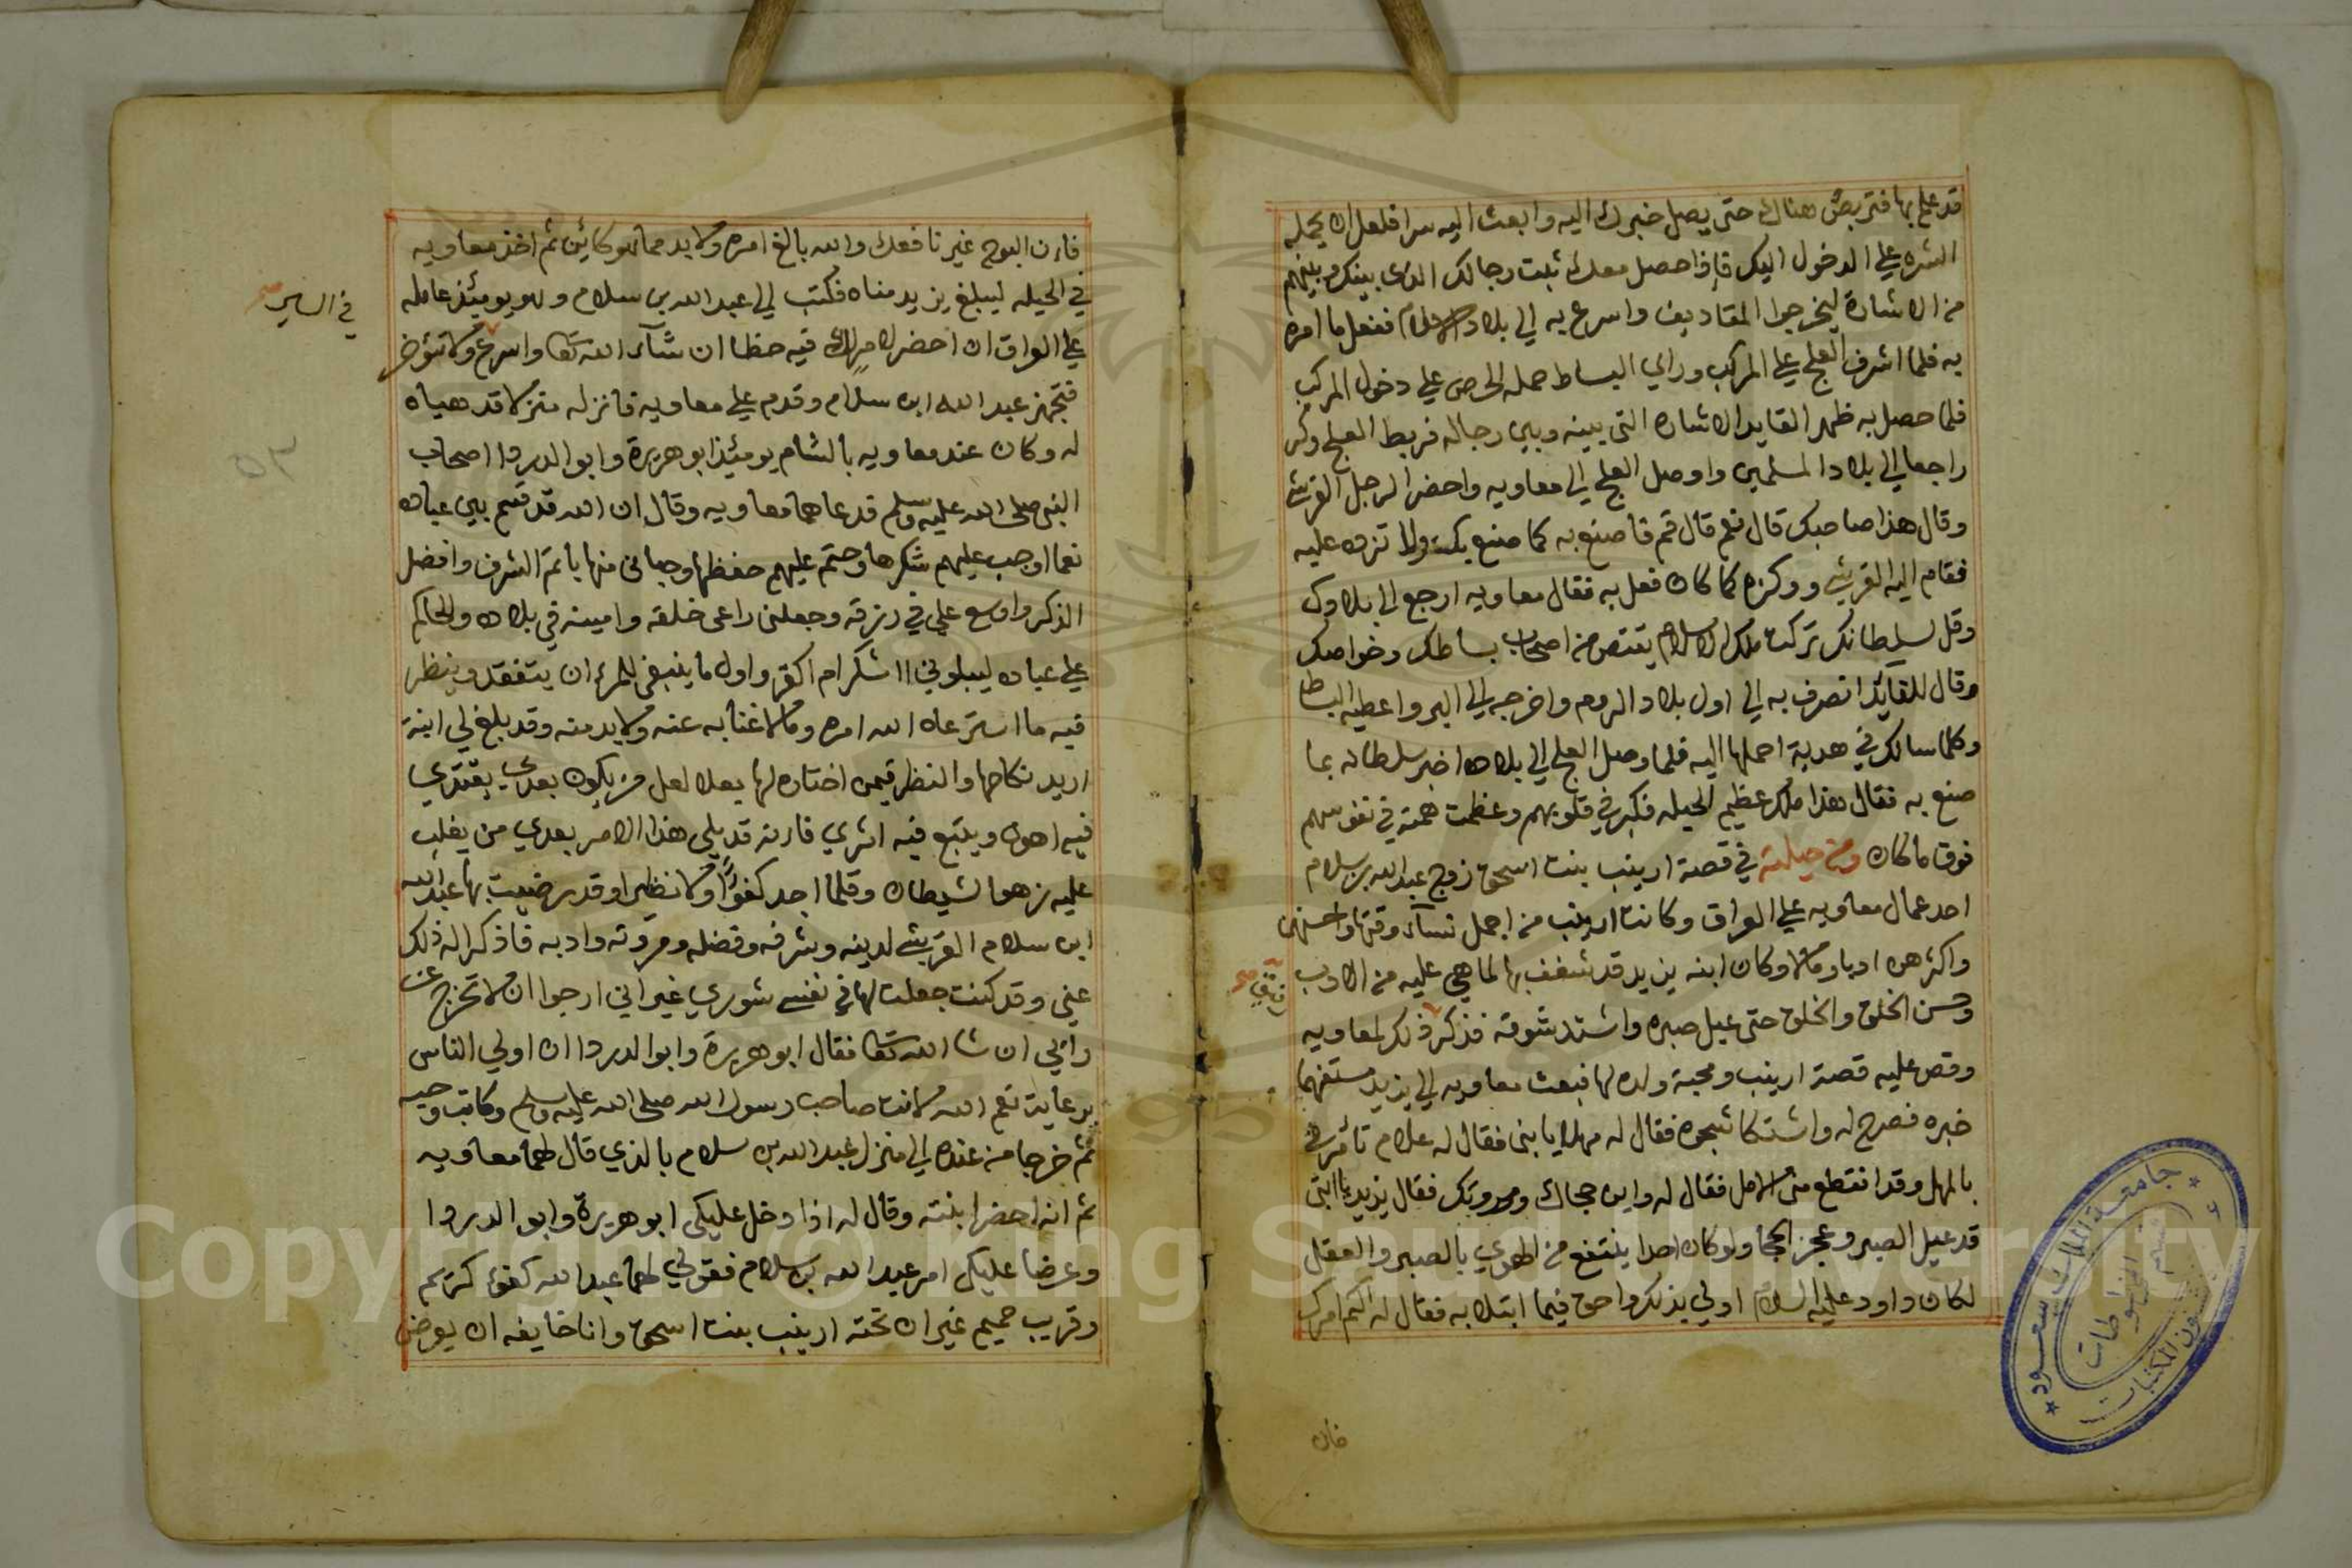 قد علم بها فتربص هناك حتى يصل خبرك اليه وابعث اليه سرا فلعل ان يحمله
الشره علي الدخول اليك فاذا حصل معك ثبت رجالك الذى بينك وبينهم
من الاشارة ليخرجوا المقاديف واسرع به الي بلاد الاسلام ففعل ما امره
به فلما اشرف العلج علي المركب وراي البساط حمله الحرص علي دخول المركب
فلما حصل به ظهر القايد الاشاره التى بينه وبين رجاله فربط العلج وكر
راجعا الي بلاد المسلمين واوصل العلج الي معاويه واحضر الرجل القرشي
وقال هذا صاحبك قال نعم قال قم فاصنع به كما صنع بك ولا تزد عليه
فقام اليه القرشي ووكزه كما كان فعل به فقال معاويه ارجع الي بلادك
وقل لسلطانك تركت ملك الاسلام يقتص من اصحاب بساطك وخواصك
وقال للقائد انصرف به الي اول بلاد الروم واخرجه الي البر واعطيه البساط
وكلما سالك في هدية احملها اليه فلما وصل العلج الي بلاده اخبر سلطانه بما
صنع به فقال هذا ملك عظيم الحيله فكبر في قلوبهم وعظمت همته في نفوسهم
فوق ما كان ومن حيلته في قصة ارينب بنت اسحق زوج عبد الله بن سلام
احد عمال معاويه علي العراق وكانت ارينب من اجمل نسآء وقتها واحسنهن
واكثرهن ادبا ومالا وكان ابنه يزيد قد شغف بها لما هي عليه من الادب
وحسن الخلق والخلق حتى عيل صبره واشتد شوقه فذكر ذلك لمعاويه
وقص عليه قصة ارينب ومحبة ولده لها فبعث معاويه الي يزيد مستفهما
خبره فصرح له واشتكا شجوه فقال له مهلا يا بنى فقال له علام تامرنى
بالمهل وقد انقطع منى الامل فقال له واين حجاك ومروتك فقال يزيد يا ابتى
قد عيل الصبر وعجز الحجا ولو كان احدا ينتفع من الهوي بالصبر والعقل
لكان داود عليه السلام اولي بذلك واحق فيما ابتلا به فقال له اكتم امرك
فان
فان البوح غير نافعك والله بالغ امره ولا بد مما هو كائن ثم اخذ معاويه
في الحيله ليبلغ يزيد مناه فكتب الي عبد الله بن سلام وهو يومئذ عامله
في السير صح
علي العراق ان احضر لامر لك فيه حظا ان شآء الله تعا واسرع ولا تؤخر
فتجهز عبد الله ابن سلام وقدم علي معاويه فانزله منزلا قد هياه
٥٣
له وكان عند معاويه بالشام يومئذ ابو هريرة وابو الدردا اصحاب
النبي صلى الله عليه وسلم فدعاهما معاويه وقال ان الله قد قسم بين عباده
نعما اوجب عليهم شكرها وحتم عليهم حفظها وحبانى منها باتم الشرف وافضل
الذكر واوسع علي في رزقه وجعلنى راعى خلقه وامينه في بلاده والحاكم
علي عباده ليبلوني ااشكر ام اكفر واول ما ينبغى للمرء ان يتفقد وينظر
فيه ما استرعاه الله امره وما لا غنا به عنه ولا بد منه وقد بلغ لي ابنة
اريد نكاحها والنظر فيمن اختاره لها بعلا لعل من يكون بعدي يقتدي
فيه اهون ويتبع فيه اثري فانه قد يلي هذا الامر بعدي من يغلب
عليه زهو الشيطان وقلما اجد كفؤا ولا نظيرا وقد رضيت بها عبد الله
ابن سلام القرشي لدينه وشرفه وفضله ومروته وادبه فاذكرا له ذلك
عني وقد كنت جعلت لها في نفسى شوري غير اني ارجوا ان لا تخرج عن
رائي ان شا الله تعا فقال ابو هريرة وابو الدردا ان اولي الناس
برعاية نعم الله لانت صاحب رسول الله صلى الله عليه وسلم وكاتب وحيه
ثم خرجا من عنده الي منزل عبد الله بن سلام بالذي قال لهما معاويه
ثم انه احضر ابنته وقال له اذا دخل عليكى ابو هريرة وابو الدردا
وعرضا عليكى امر عبد الله بن سلام فقولي لهما عبد الله كفؤ كريم
وقريب حميم غير ان تحته ارينب بنت اسحق وانا خايفه ان يعرض
جامعة الملك سعود
قسم المخطوطات
شؤون المكتبات
Copyright © King Saud University